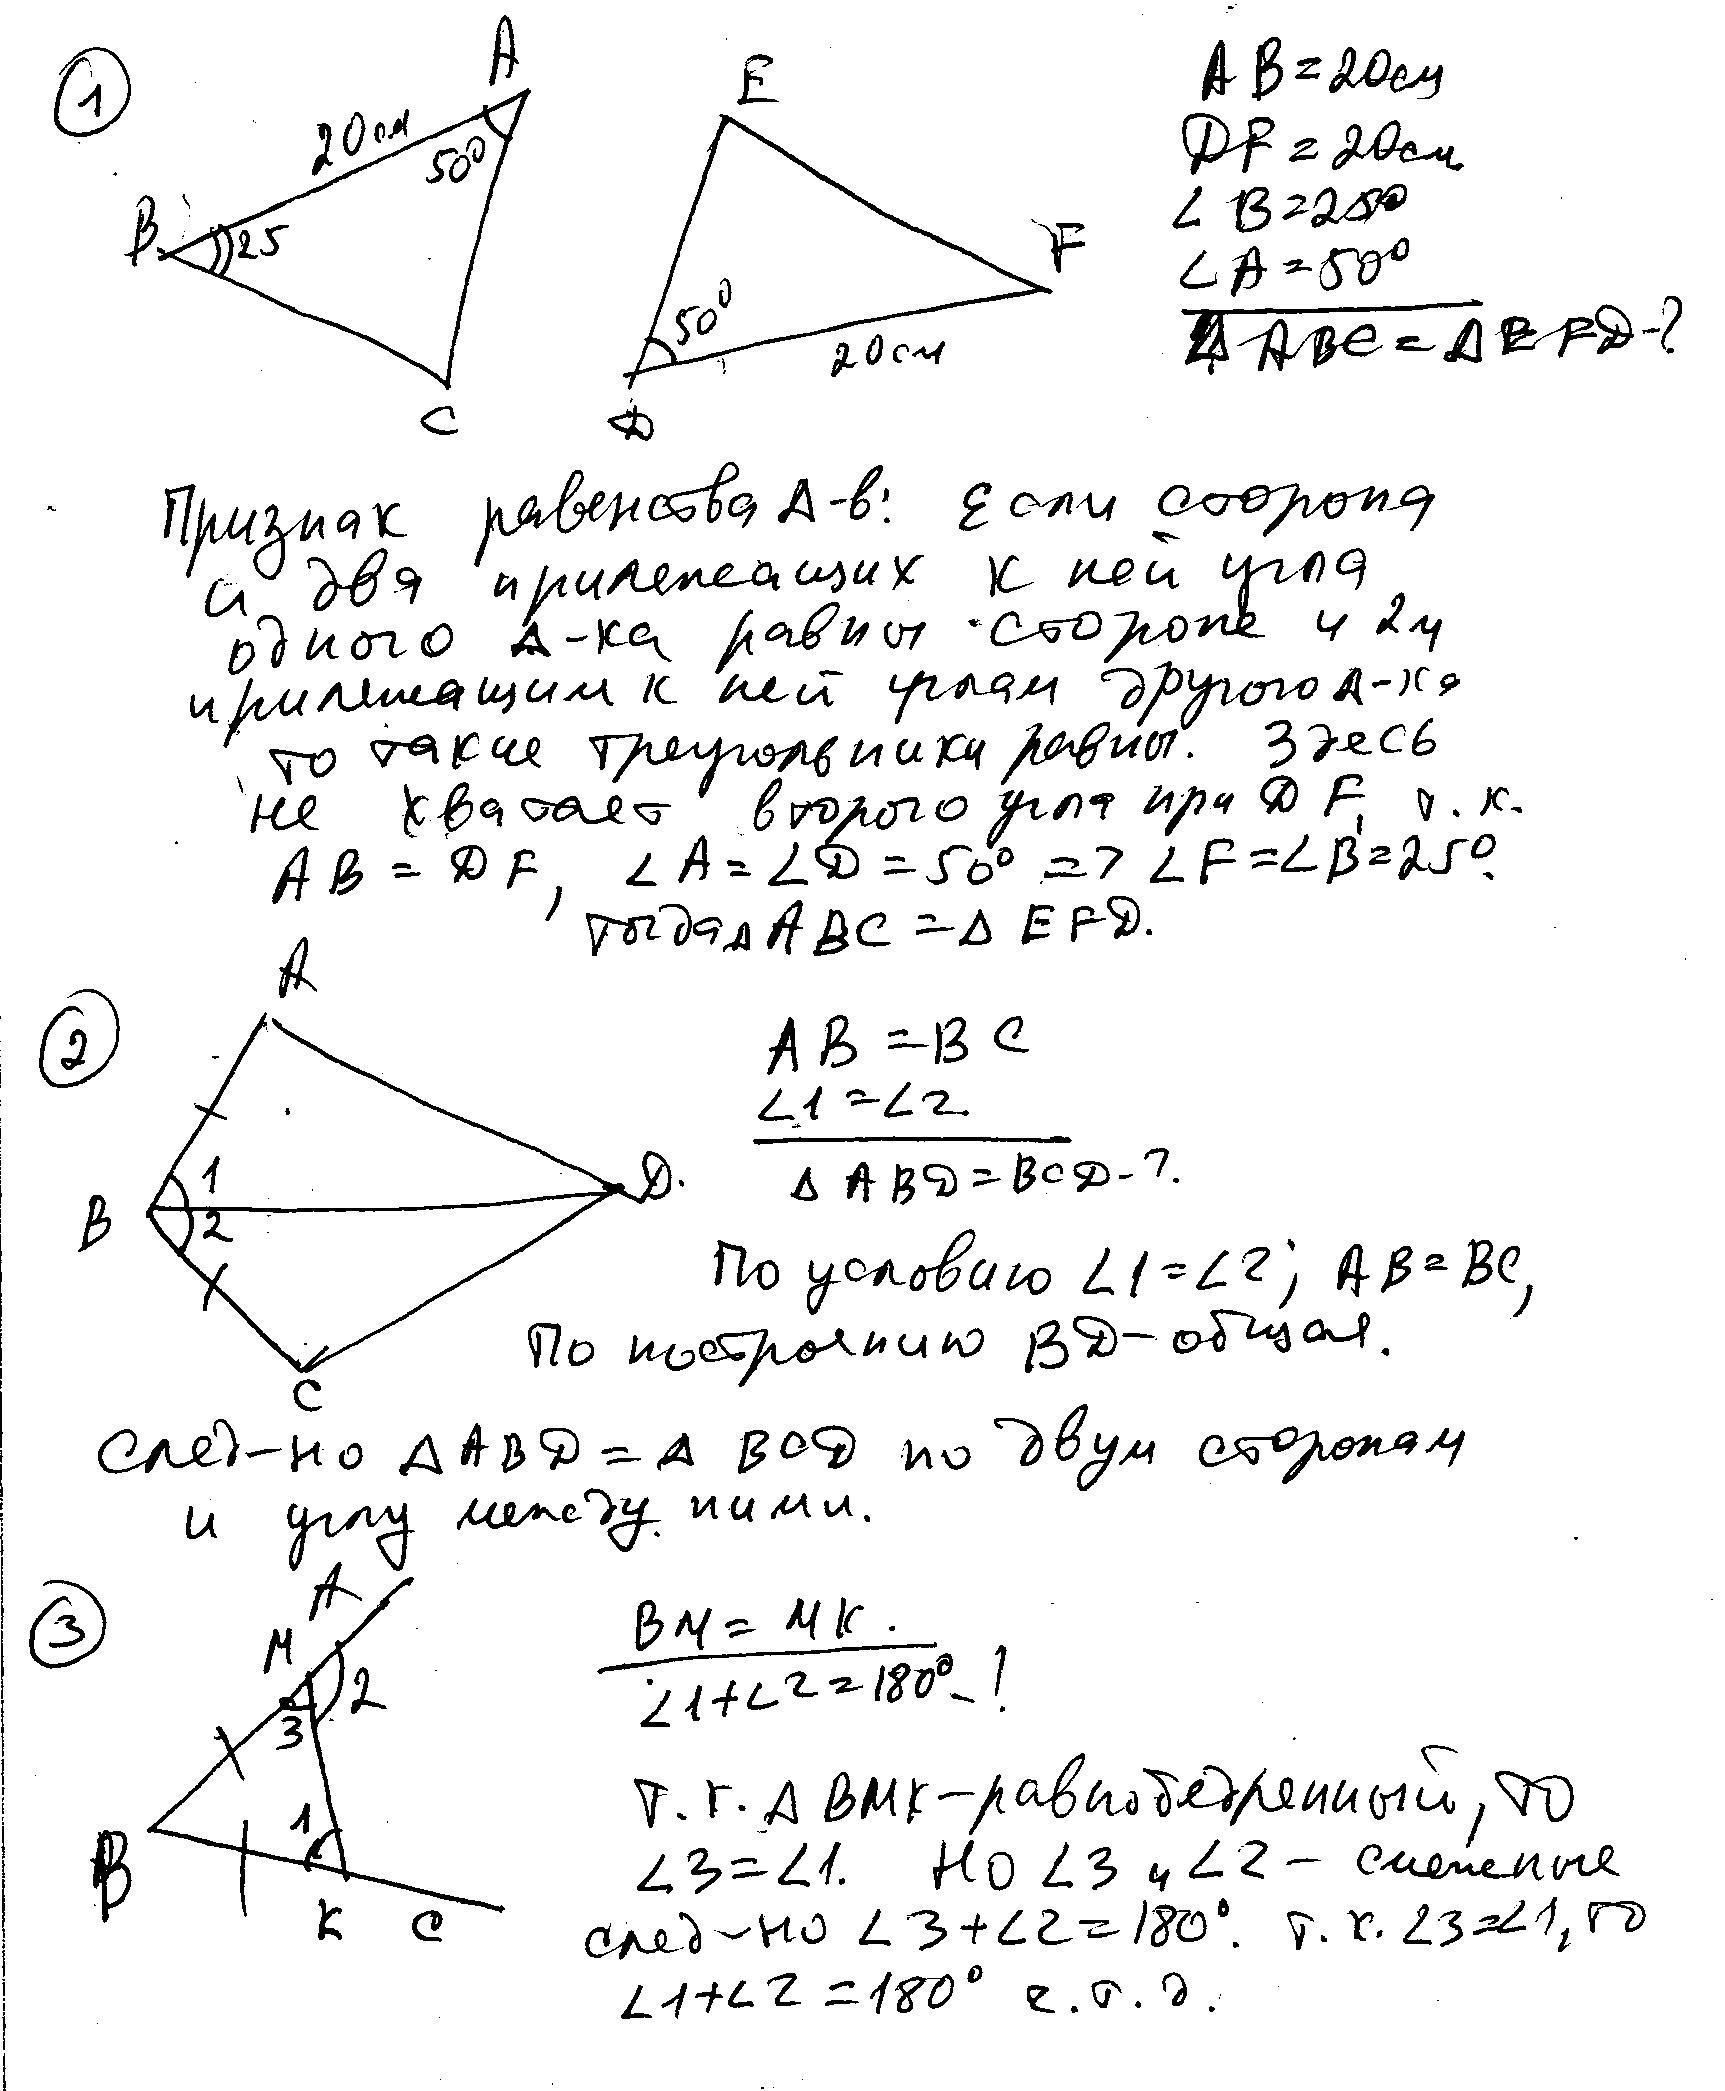 1
A
20см
50°
B
25
C
E
50°
F
20см
D
AB=20см
DF=20см
∠B=25°
∠A=50°
ΔABC=ΔEFD-?
Признак равенства Δ-в: Если сторона
и два прилежащих к ней угла
одного Δ-ка равны стороне и 2м
прилежащим к ней углам другого Δ-ка
то такие треугольники равны. Здесь
не хватает второго угла при DF, т.к.
AB=DF, ∠A=∠D=50° => ∠F=∠B=25°.
тогда ΔABC=ΔEFD.
2
A
1
2
B
D.
C
AB=BC
∠1=∠2.
ΔABD=BCD-?.
По условию ∠1=∠2; AB=BC,
По построению BD-общая.
след-но ΔABD=ΔBCD по двум сторонам
и углу между ними.
3
A
M
2
3
1
B
K
C
BM=MK.
∠1+∠2=180°-!
т.к. ΔBMK-равнобедренный, то
∠3=∠1. Но ∠3 и ∠2 - смежные
след-но ∠3+∠2=180°. т.к. ∠3=∠1, то
∠1+∠2=180° ч.т.д.